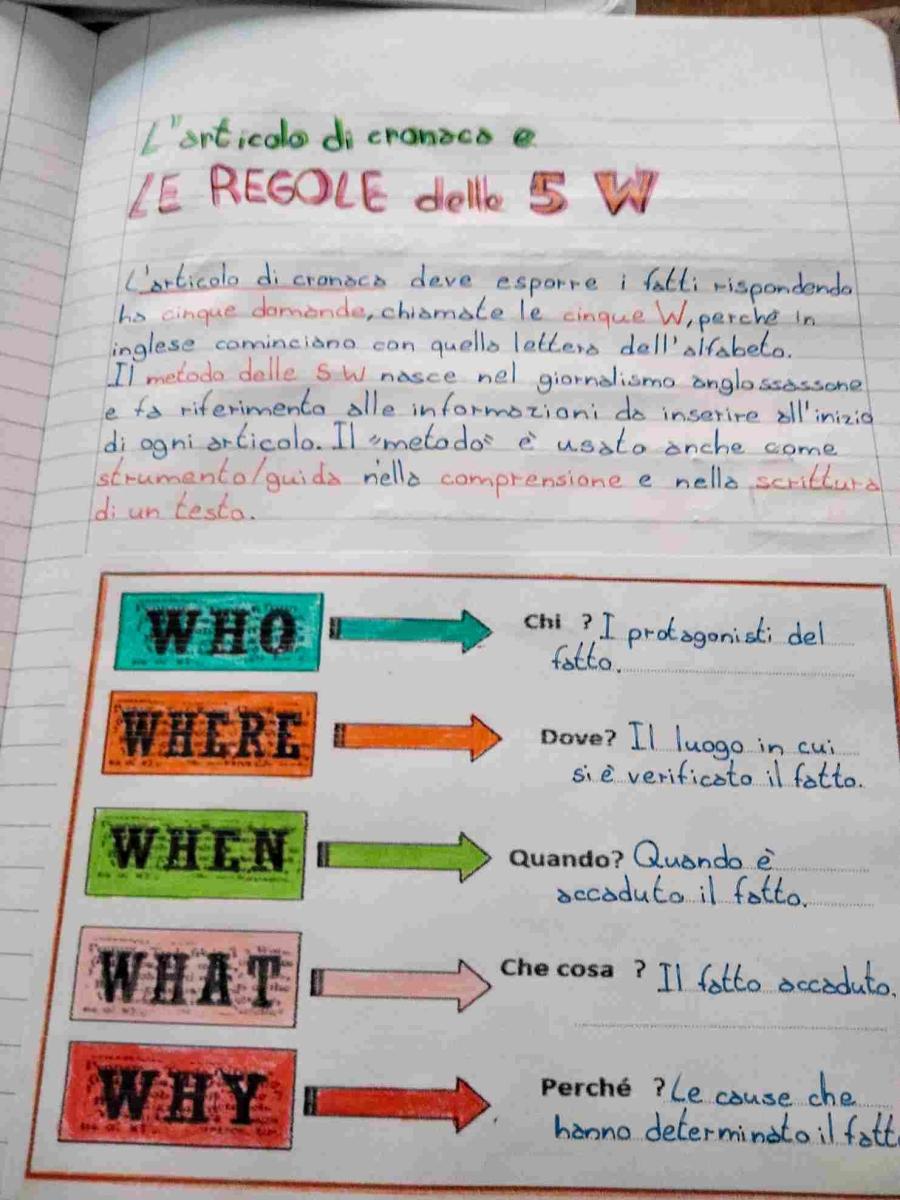 L'articolo di cronaca e
LE REGOLE delle 5 W
L'articolo di cronaca deve esporre i fatti rispondendo
ha cinque domande, chiamate le cinque W, perchè in
inglese cominciano con quella lettera dell'alfabeto.
Il metodo delle 5 W nasce nel giornalismo anglossassone
e fa riferimento alle informazioni da inserire all'inizio
di ogni articolo. Il "metodo" è usato anche come
strumento/guida nella comprensione e nella scrittura
di un testo.
WHO Chi ? I protagonisti del
fatto.
WHERE Dove? Il luogo in cui
si è verificato il fatto.
WHEN Quando? Quando è
accaduto il fatto.
WHAT Che cosa ? Il fatto accaduto.
WHY Perché ? Le cause che
hanno determinato il fatt